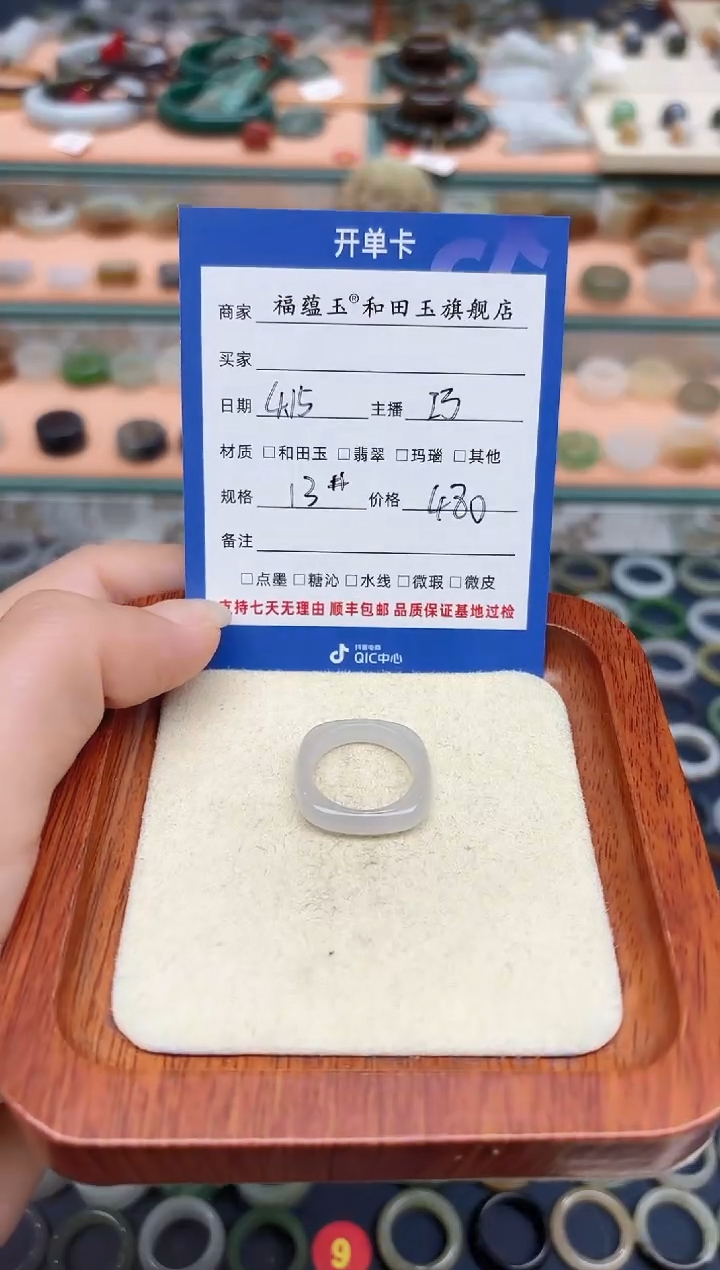 开单卡
商家 福蕴玉®和田玉旗舰店
买家
日期 4.15 主播 13
材质 □和田玉 □翡翠 □玛瑙 □其他
规格 13# 价格 480
备注
□点墨 □糖沁 □水线 □微瑕 □微皮
支持七天无理由 顺丰包邮 品质保证基地过检
抖音电商
QIC中心
9